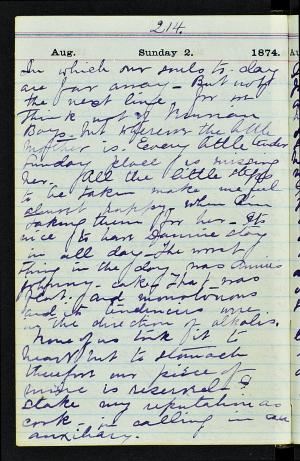 214.
Aug. Sunday 2. 1874.
In which our souls to-day
are far away - But not
the next line for we
think not of Human
Bays - but wherever the little
mother is. Every little tender
Sunday place is missing
her. All the little steps
to be taken make me feel
almost happy - when I'm
taking them for her - It's
nice to have Sunnie stay
in all day - The worst
thing in the day was Annie's
johnny-cake. That was
flat. and monotonous
and its tendencies were
in the direction of alkalies.
None of us took it to
heart but to stomach
therefore our piece of
mind is reserved. I
stake my reputation as
cook in calling in an
auxiliary.